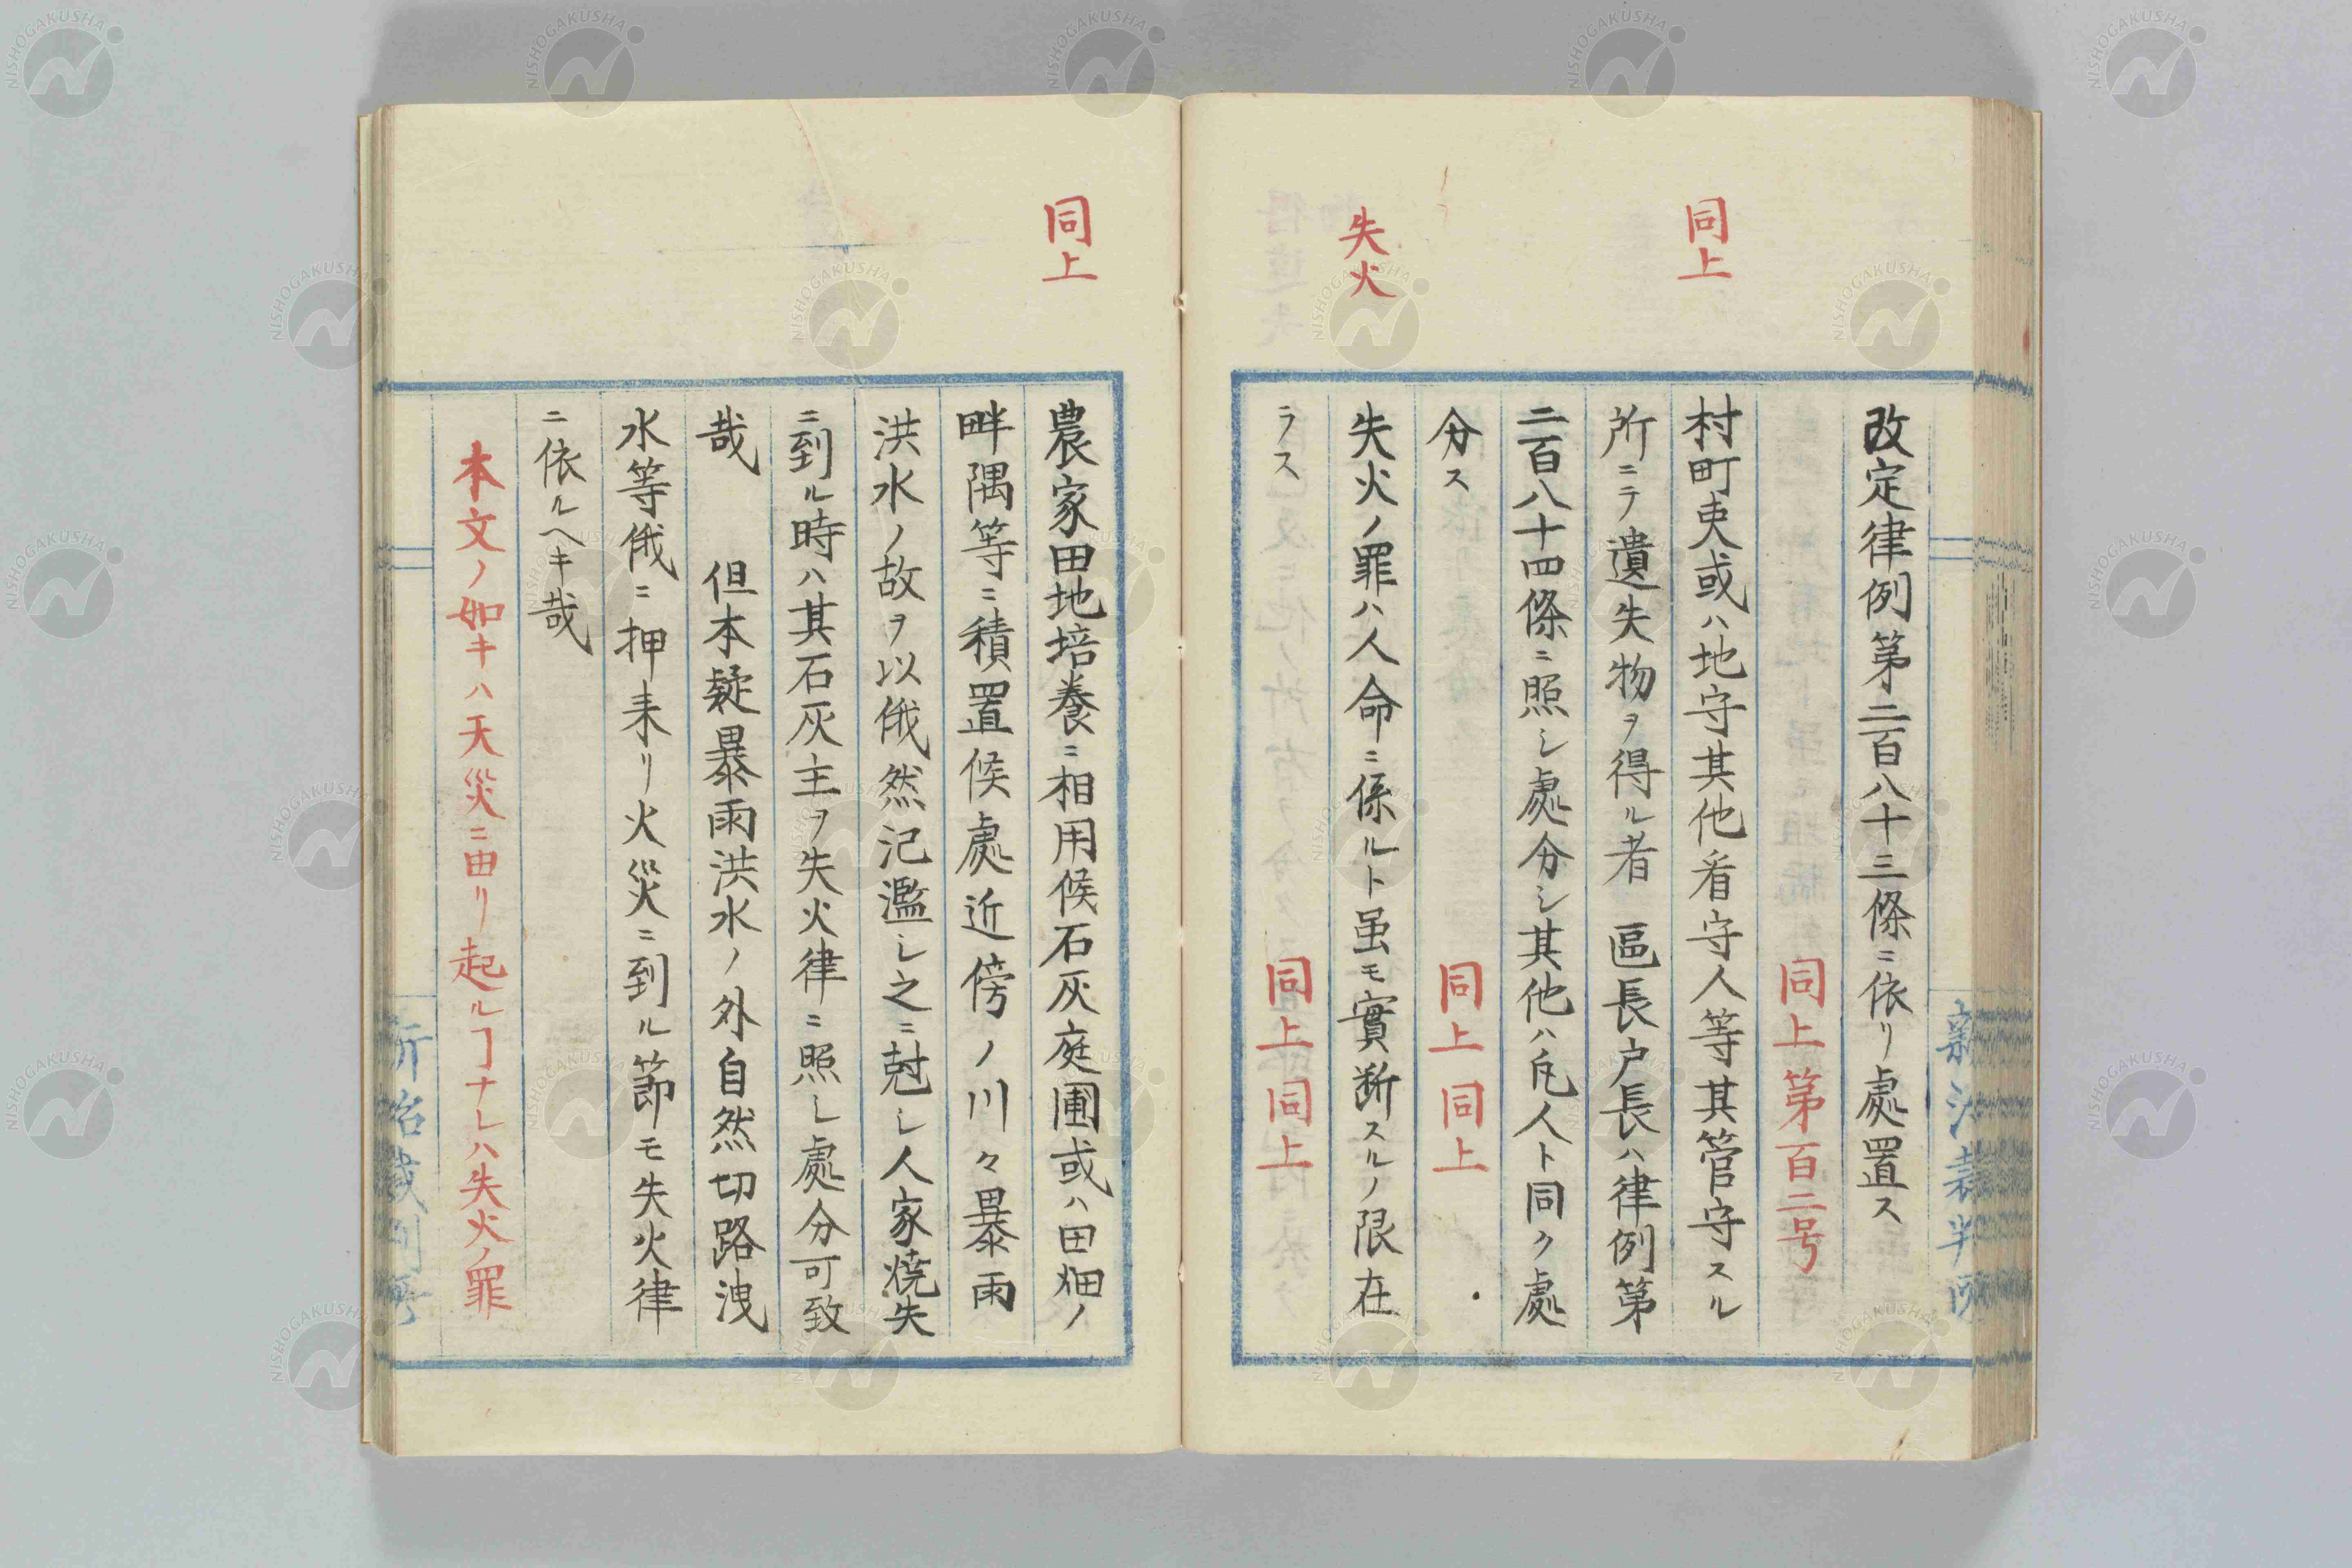 改定律例第二百八十三條ニ依リ處置ス
同上第百二号
同上
村町吏或ハ地守其他看守人等其管守スル
所ニテ遺失物ヲ得ル者 區長戸長ハ律例第
二百八十四條ニ照シ處分シ其他ハ凡人ト同ク處
分ス
同上同上
失火
失火ノ罪ハ人命ニ係ルト虽モ實断スルノ限在
ラス
同上同上
同上
農家田地培養ニ相用候石灰庭圃或ハ田畑ノ
畔隅等ニ積置候處近傍ノ川々暴雨
洪水ノ故ヲ以俄然氾濫シ之ニ尅シ人家焼失
ニ到ル時ハ其石灰主ヲ失火律ニ照シ處分可致
哉 但本疑暴雨洪水ノ外自然切路洩
水等俄ニ押来リ火災ニ到ル節モ失火律
ニ依ルヘキ哉
本文ノ如キハ天災ニ由リ起ルヿナレハ失火ノ罪
新治裁判所
NISHOGAKUSHA